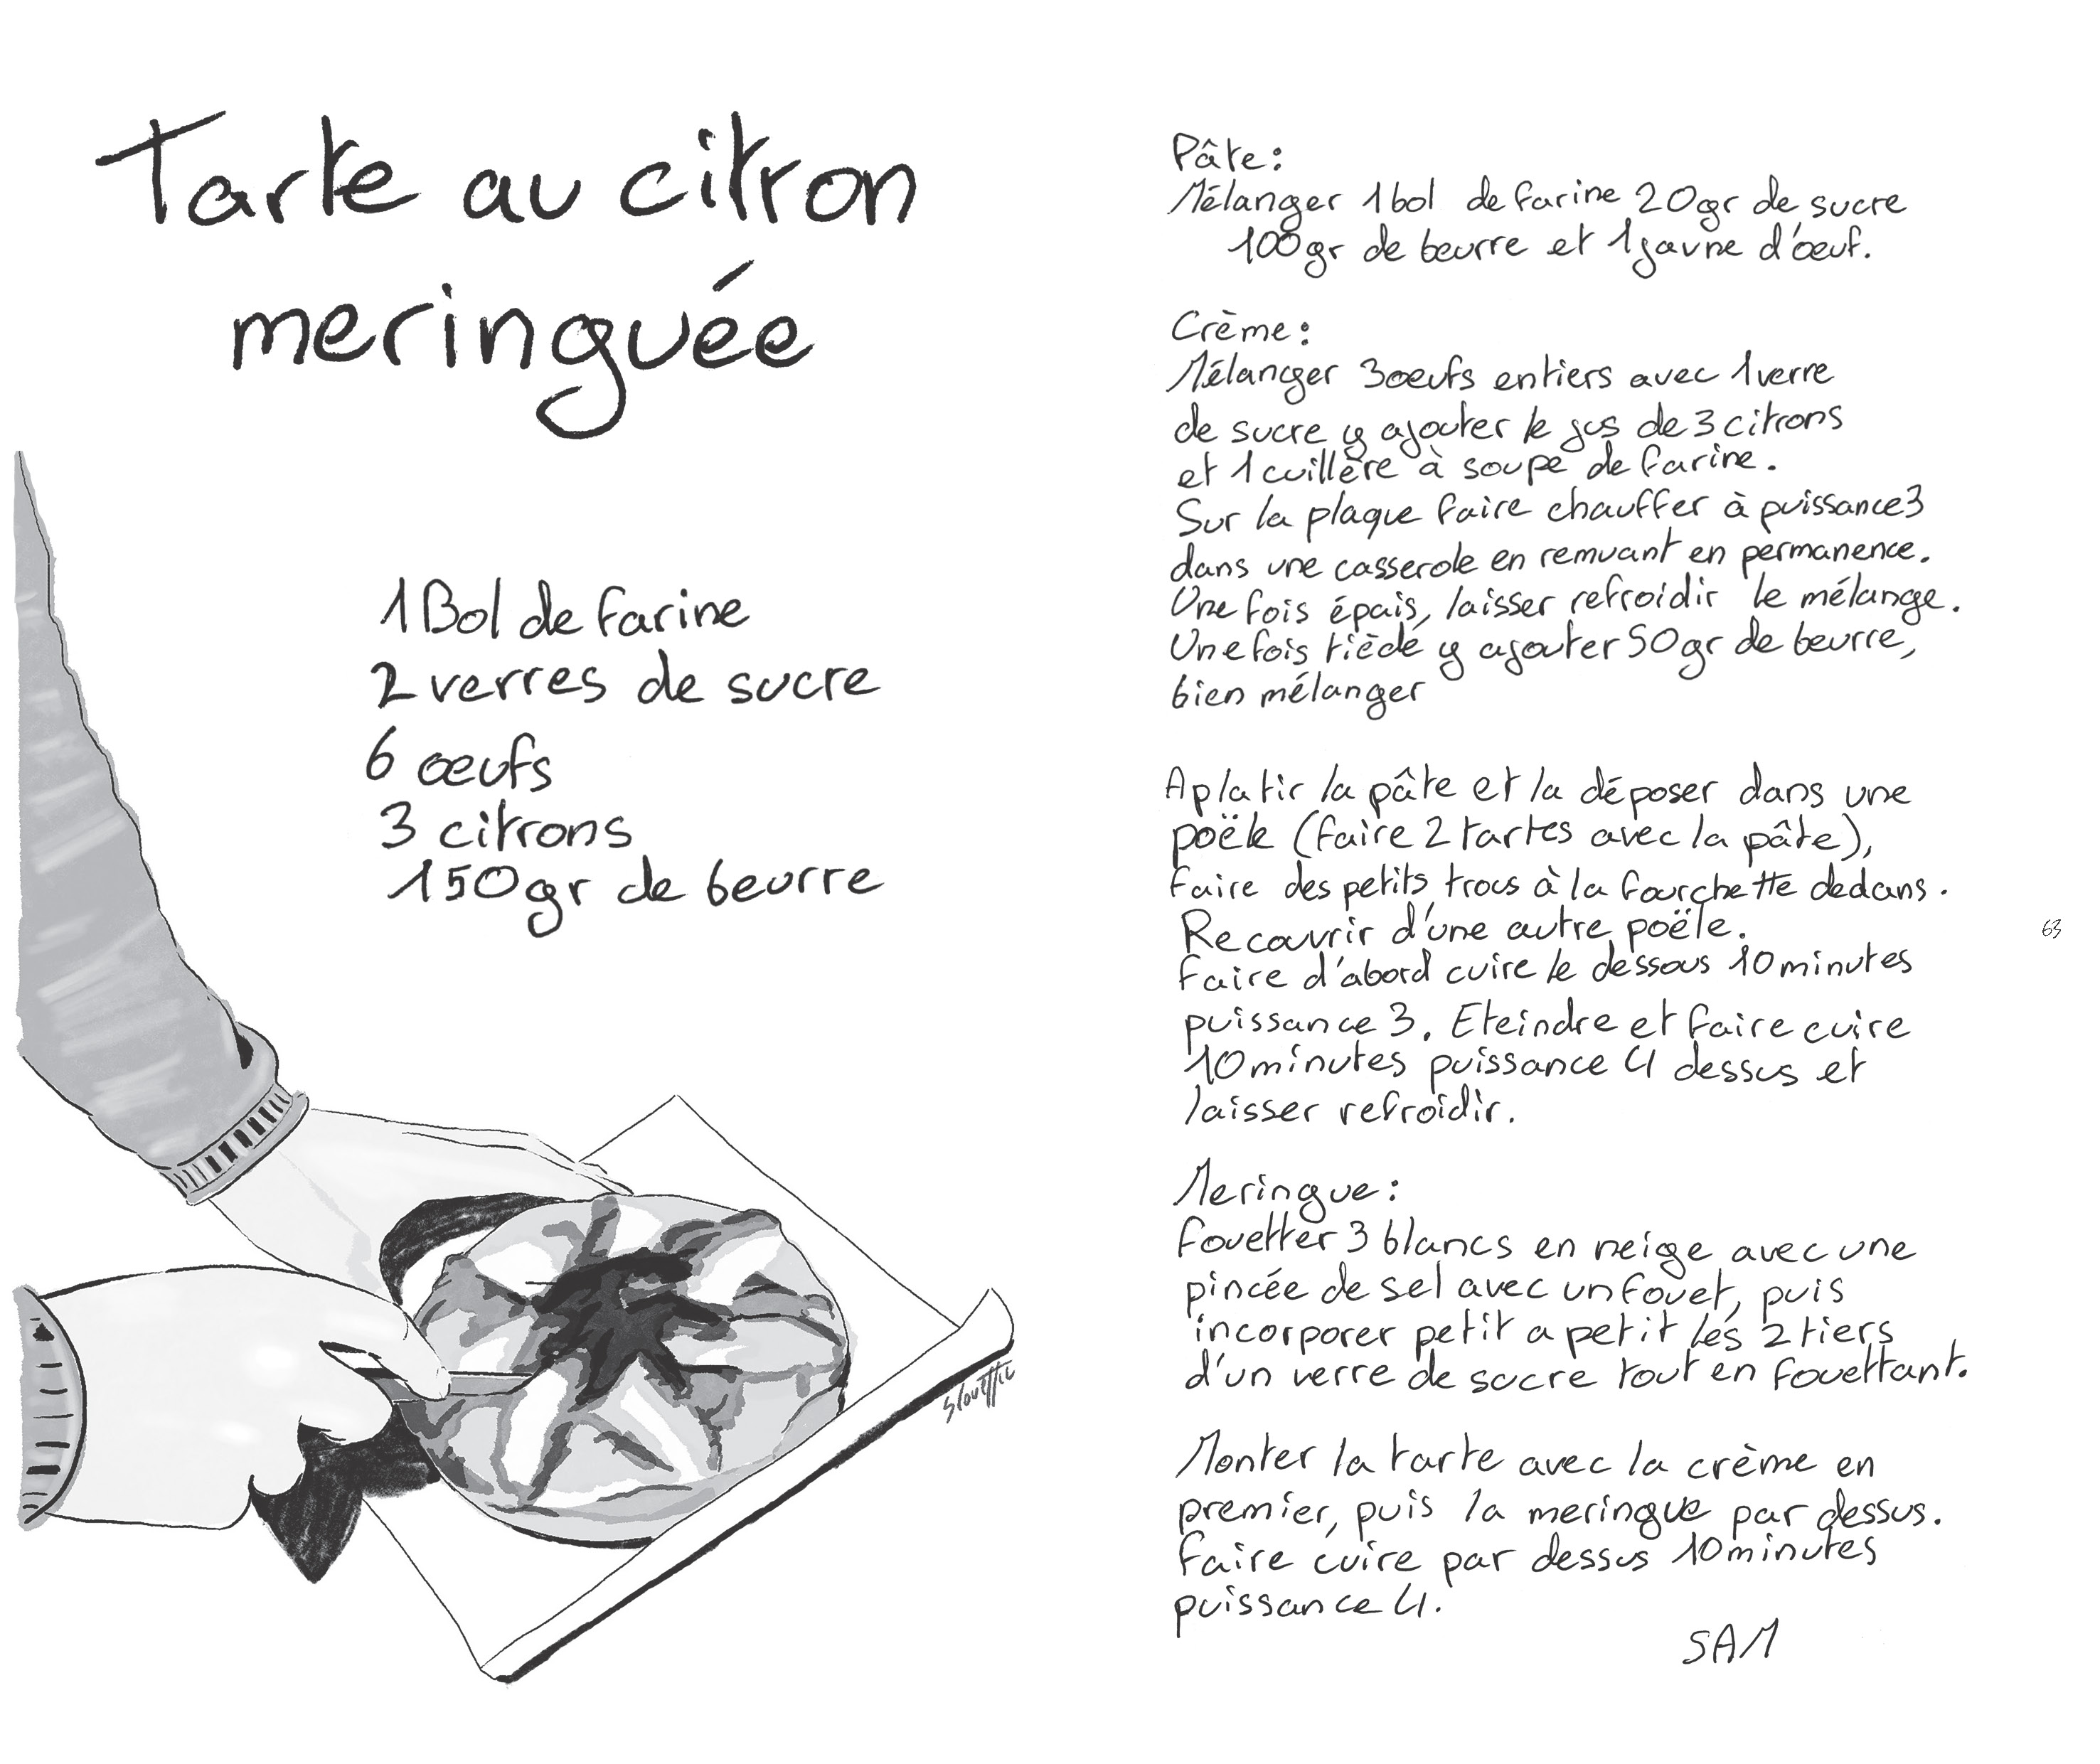 Tarte au citron
meringuée
1 Bol de farine
2 verres de sucre
6 œufs
3 citrons
150gr de beurre
Slouffie
Pâte:
Mélanger 1 bol de farine 20gr de sucre
100gr de beurre et 1 jaune d'œuf.
Crème:
Mélanger 3 œufs entiers avec 1 verre
de sucre y ajouter le jus de 3 citrons
et 1 cuillère à soupe de farine.
Sur la plaque faire chauffer à puissance 3
dans une casserole en remuant en permanence.
Une fois épais, laisser refroidir le mélange.
Une fois tiède y ajouter 50gr de beurre,
bien mélanger
Aplatir la pâte et la déposer dans une
poële (faire 2 tartes avec la pâte),
faire des petits trous à la fourchette dedans.
Recouvrir d'une autre poële.
faire d'abord cuire le dessous 10 minutes
puissance 3. Eteindre et faire cuire
10 minutes puissance 4 dessus et
laisser refroidir.
Meringue:
fouetter 3 blancs en neige avec une
pincée de sel avec un fouet, puis
incorporer petit a petit les 2 tiers
d'un verre de sucre tout en fouettant.
Monter la tarte avec la crème en
premier, puis la meringue par dessus.
faire cuire par dessus 10 minutes
puissance 4.
SAM
63